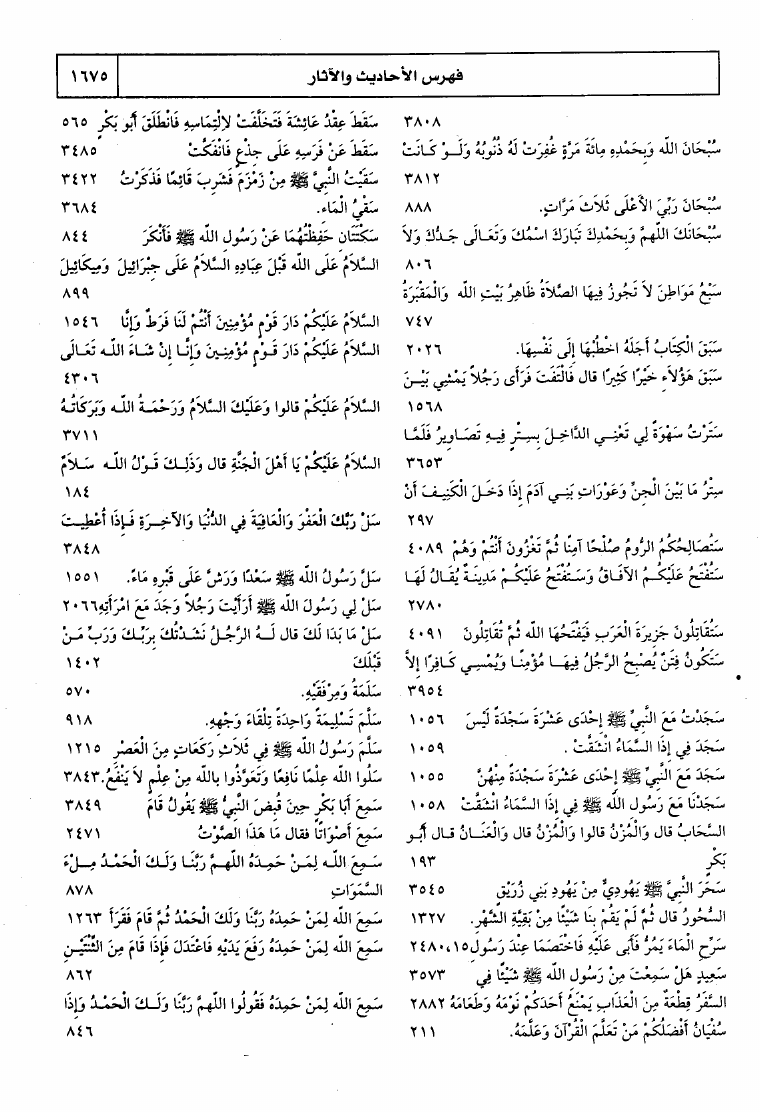 فهرس الأحاديث والآثار
١٦٧٥
٣٨٠٨
سُبْحَانَ اللّه وَبِحَمْدِهِ مِائَةَ مَرَّةٍ غُفِرَتْ لَهُ ذُنُوبُهُ وَلَـوْ كَـانَتْ
٣٨١٢
سُبْحَانَ رَبِّيَ الأَعْلَى ثَلاَثَ مَرَّاتٍ. ٨٨٨
سُبْحَانَكَ اللَّهمَّ وَبِحَمْدِكَ تَبَارَكَ اسْمُكَ وَتَعَـالَى جَـدُّكَ وَلاَ
٨٠٦
سَبْعُ مَوَاطِنَ لاَ تَجُوزُ فِيهَا الصَّلاَةُ ظَاهِرُ بَيْتِ اللّه وَالْمَقْبَرَةُ
٧٤٧
سَبَقَ الْكِتَابُ أَجَلَهُ اخْطُبْهَا إِلَى نَفْسِهَا. ٢٠٢٦
سَبَقَ هَؤُلاَءِ خَيْرًا كَثِيرًا قال فَالْتَفَتَ فَرَأَى رَجُلاً يَمْشِي بَيْـنَ
١٥٦٨
سَتَرْتُ سَهْوَةً لِي تَعْنِـي الدَّاخِـلَ بِسِـتْرٍ فِيـهِ تَصَـاوِيرُ فَلَمَّـا
٣٦٥٣
سِتْرُ مَا بَيْنَ الْجِنِّ وَعَوْرَاتِ بَنِـي آدَمَ إِذَا دَخَـلَ الْكَنِيـفَ أَنْ
٢٩٧
سَتُصَالِحُكُمُ الرُّومُ صُلْحًا آمِنًا ثُمَّ تَغْزُونَ أَنْتُمْ وَهُمْ ٤٠٨٩
سَتُفْتَحُ عَلَيْكُـمُ الآفَـاقُ وَسَـتُفْتَحُ عَلَيْكُـمْ مَدِينَـةٌ يُقَـالُ لَهَـا
٢٧٨٠
سَتُقَاتِلُونَ جَزِيرَةَ الْعَرَبِ فَيَفْتَحُهَا اللّه ثُمَّ تُقَاتِلُونَ ٤٠٩١
سَتَكُونُ فِتَنٌ يُصْبِحُ الرَّجُلُ فِيهَـا مُؤْمِنًـا وَيُمْسِـي كَـافِرًا إِلاَّ
٣٩٥٤
سَجَدْتُ مَعَ النَّبِيِّ ﷺ إِحْدَى عَشْرَةَ سَجْدَةً لَيْسَ ١٠٥٦
سَجَدَ فِي إِذَا السَّمَاءُ انْشَقَّتْ . ١٠٥٩
سَجَدَ مَعَ النَّبِيِّ ﷺ إِحْدَى عَشْرَةَ سَجْدَةً مِنْهُنَّ ١٠٥٥
سَجَدْنَا مَعَ رَسُولِ اللّه ﷺ فِي إِذَا السَّمَاءُ انْشَقَّتْ ١٠٥٨
السَّحَابُ قال وَالْمُزْنُ قالوا وَالْمُزْنُ قال وَالْعَنَـانُ قـال أَبُـو
بَكْرٍ ١٩٣
سَحَرَ النَّبِيَّ ﷺ يَهُودِيٌّ مِنْ يَهُودِ بَنِي زُرَيْقٍ ٣٥٤٥
السُّحُورُ قال ثُمَّ لَمْ يَقُمْ بِنَا شَيْئًا مِنْ بَقِيَّةِ الشَّهْرِ. ١٣٢٧
سَرِّحِ الْمَاءَ يَمُرُّ فَأَبَى عَلَيْهِ فَاخْتَصَمَا عِنْدَ رَسُولِ١٥، ٢٤٨٠
سَعِيدٍ هَلْ سَمِعْتَ مِنْ رَسُولِ اللّه ﷺ شَيْئًا فِي ٣٥٧٣
السَّفَرُ قِطْعَةٌ مِنَ الْعَذَابِ يَمْنَعُ أَحَدَكُمْ نَوْمَهُ وَطَعَامَهُ ٢٨٨٢
سُفْيَانُ أَفْضَلُكُمْ مَنْ تَعَلَّمَ الْقُرْآنَ وَعَلَّمَهُ. ٢١١
سَقَطَ عِقْدُ عَائِشَةَ فَتَخَلَّفَتْ لاِلْتِمَاسِهِ فَانْطَلَقَ أَبُو بَكْرٍ ٥٦٥
سَقَطَ عَنْ فَرَسِهِ عَلَى جِذْعٍ فَانْفَكَّتْ ٣٤٨٥
سَقَيْتُ النَّبِيَّ ﷺ مِنْ زَمْزَمَ فَشَرِبَ قَائِمًا فَذَكَرْتُ ٣٤٢٢
سَقْيُ الْمَاءِ. ٣٦٨٤
سَكْتَتَانِ حَفِظْتُهُمَا عَنْ رَسُولِ اللّه ﷺ فَأَنْكَرَ ٨٤٤
السَّلاَمُ عَلَى اللّه قَبْلَ عِبَادِهِ السَّلاَمُ عَلَى جِبْرَائِيلَ وَمِيكَائِيلَ
٨٩٩
السَّلاَمُ عَلَيْكُمْ دَارَ قَوْمٍ مُؤْمِنِينَ أَنْتُمْ لَنَا فَرَطٌ وَإِنَّا ١٥٤٦
السَّلاَمُ عَلَيْكُمْ دَارَ قَـوْمٍ مُؤْمِنِـينَ وَإِنَّـا إِنْ شَـاءَ اللّـه تَعَـالَى
٤٣٠٦
السَّلاَمُ عَلَيْكُمْ قالوا وَعَلَيْكَ السَّلاَمُ وَرَحْمَـةُ اللّـه وَبَرَكَاتُـهُ
٣٧١١
السَّلاَمُ عَلَيْكُمْ يَا أَهْلَ الْجَنَّةِ قال وَذَلِـكَ قَـوْلُ اللّـه سَـلاَمٌ
١٨٤
سَلْ رَبَّكَ الْعَفْوَ وَالْعَافِيَةَ فِي الدُّنْيَا وَالآخِـرَةِ فَـإِذَا أُعْطِيـتَ
٣٨٤٨
سَلَّ رَسُولُ اللّه ﷺ سَعْدًا وَرَشَّ عَلَى قَبْرِهِ مَاءً. ١٥٥١
سَلْ لِي رَسُولَ اللّه ﷺ أَرَأَيْتَ رَجُلاً وَجَدَ مَعَ امْرَأَتِهِ٢٠٦٦
سَلْ مَا بَدَا لَكَ قال لَـهُ الرَّجُـلُ نَشَدْتُكَ بِرَبِّـكَ وَرَبِّ مَـنْ
قَبْلَكَ ١٤٠٢
سَلَمَةُ وَمِرْفَقَيْهِ. ٥٧٠
سَلَّمَ تَسْلِيمَةً وَاحِدَةً تِلْقَاءَ وَجْهِهِ. ٩١٨
سَلَّمَ رَسُولُ اللّه ﷺ فِي ثَلاَثِ رَكَعَاتٍ مِنَ الْعَصْرِ ١٢١٥
سَلُوا اللّه عِلْمًا نَافِعًا وَتَعَوَّذُوا بِاللّه مِنْ عِلْمٍ لاَ يَنْفَعُ.٣٨٤٣
سَمِعَ أَبَا بَكْرٍ حِينَ قُبِضَ النَّبِيُّ ﷺ يَقُولُ قَامَ ٣٨٤٩
سَمِعَ أَصْوَاتًا فقال مَا هَذَا الصَّوْتُ ٢٤٧١
سَـمِعَ اللّـه لِمَـنْ حَمِـدَهُ اللَّهـمَّ رَبَّنَـا وَلَـكَ الْحَمْـدُ مِـلْءَ
السَّمَوَاتِ ٨٧٨
سَمِعَ اللّه لِمَنْ حَمِدَهُ رَبَّنَا وَلَكَ الْحَمْدُ ثُمَّ قَامَ فَقَرَأَ ١٢٦٣
سَمِعَ اللّه لِمَنْ حَمِدَهُ رَفَعَ يَدَيْهِ فَاعْتَدَلَ فَإِذَا قَامَ مِنَ الثِّنْتَيْـنِ
٨٦٢
سَمِعَ اللّه لِمَنْ حَمِدَهُ فَقُولُوا اللَّهمَّ رَبَّنَا وَلَـكَ الْحَمْـدُ وَإِذَا
٨٤٦